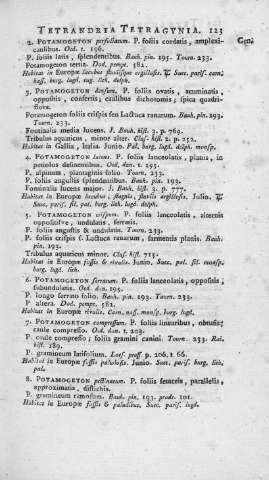 TETRANDRIA TETRAGYNIA. 123
2. POTAMOGETON perfoliatum. P. foliis cordatis, amplexi-
caulibus. Oed. t. 196.
P. foliis latis, splendentibus. Bauh. pin. 193. Tourn. 233.
Potamogeton tertia. Dod. pempt. 582.
Habitat in Europæ lacubus fluviisque argillosis. ♃ Succ. paris. cam.
burg. lugd. lich. delph.
3. POTAMOGETON densum. P. foliis ovatis, acuminatis,
oppositis, confertis, caulibus dichotomis; spica quadri-
flora.
Potamogeton foliis crispis seu Lactucæ ranarum. Bauh. pin. 193.
Tourn. 233.
Fontinalis media lucens. J. Bauh. hist. 3. p. 769.
Tribulus aquaticus, minor alter. Cluf. hist. 2. p. 252.
Habitat in Gallia, Italia. Junio. Pal. burg. lugd. delph. monsp.
4. POTAMOGETON lucens. P. foliis lanceolatis, planis, in
petiolos desinentibus. Oed. dan. t. 195.
P. alpinum, plantaginis folio. Tourn. 233.
P. foliis angustis splendentibus. Bauh. pin. 193.
Fontinalis lucens major. J. Bauh. hist. 3. p. 777.
Habitat in Europæ lacubus, stagnis, fluviis argillosis. Julio. ♃
5. POTAMOGETON crispum. P. foliis lanceolatis, alternis
oppositisve, undulatis, serratis.
P. foliis angustis & undulatis. Tourn. 233.
P. foliis crispis s. Lactuca ranarum, sarmentis planis. Bauh.
pin. 193.
Tribulus aquaticus minor. Cluf. hist. 715.
Habitat in Europæ fossis & rivulis. Junio. Succ. pal. lil. monsp.
burg. lugd. lich.
6. POTAMOGETON serratum. P. foliis lanceolatis, oppositis,
subundulatis. Oed. dan. 195.
P. longo serrato folio. Bauh. pin. 193. Tourn. 233.
P. altera. Dod. pempt. 582.
Habitat in Europæ rivulis. Cam. monsp. burg. lugd.
7. POTAMOGETON compressum. P. foliis linearibus, obtusis;
caule compresso. Oed. dan. t. 203.
P. caule compresso; foliis gramini canini. Tourn. 233. Rai.
hist. 189.
P. gramineum latifolium. Loes. pruss. p. 206. t. 66.
Habitat in Europæ fossis paludosis. Junio. Succ. paris. burg. lich.
pal.
8. POTAMOGETON pectinatum. P. foliis setaceis, parallelis,
approximatis, distichis.
P. gramineum ramosum. Bauh. pin. 193. prodr. 101.
Habitat in Europæ fossis & paludibus. Succ. paris. lugd.